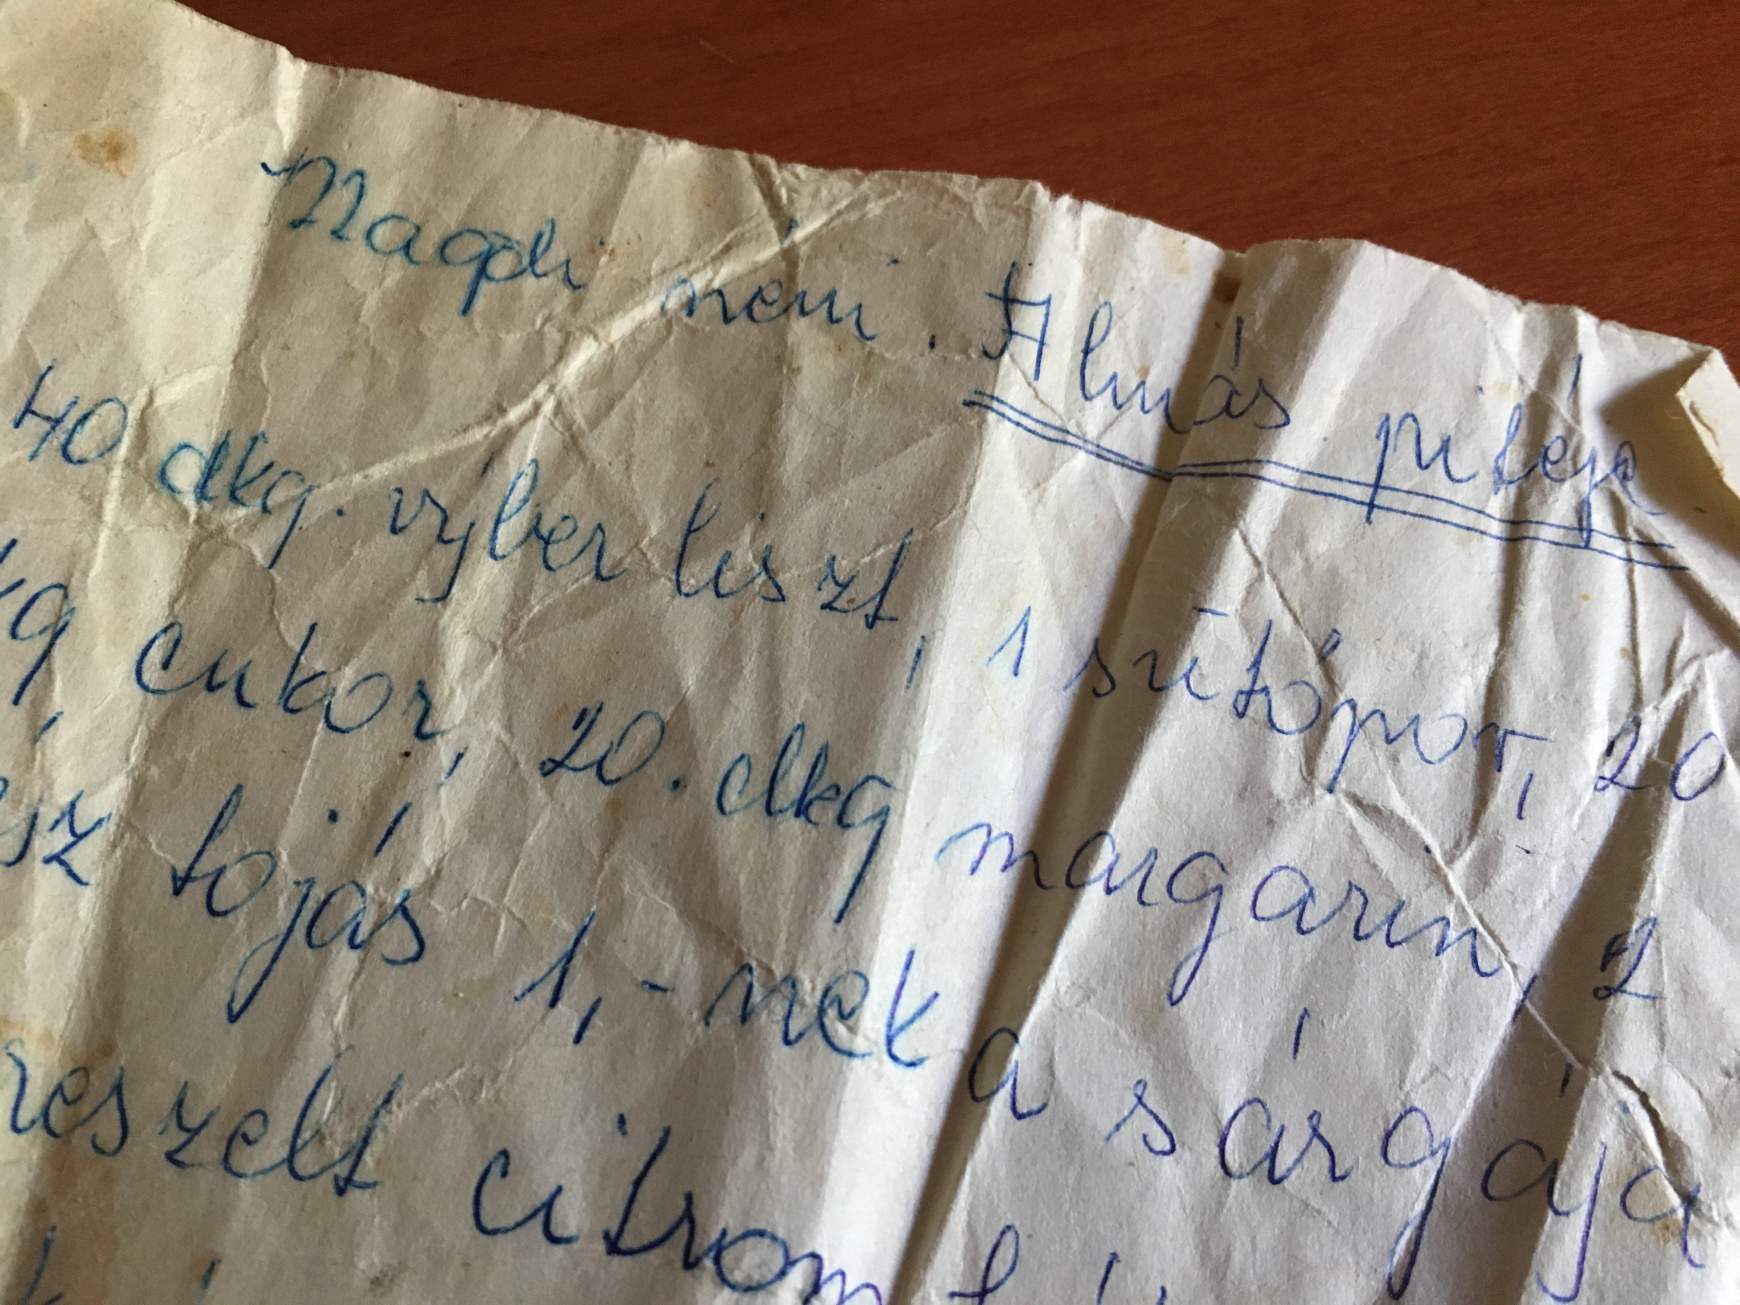 Magdi néni. Almás pitéje
40 dkg. vyber liszt, 1 sütőpor, 20
kg, cukor, 20. dkg margarin, 2
sz tojás 1,-nek a sárgája
reszelt citrom